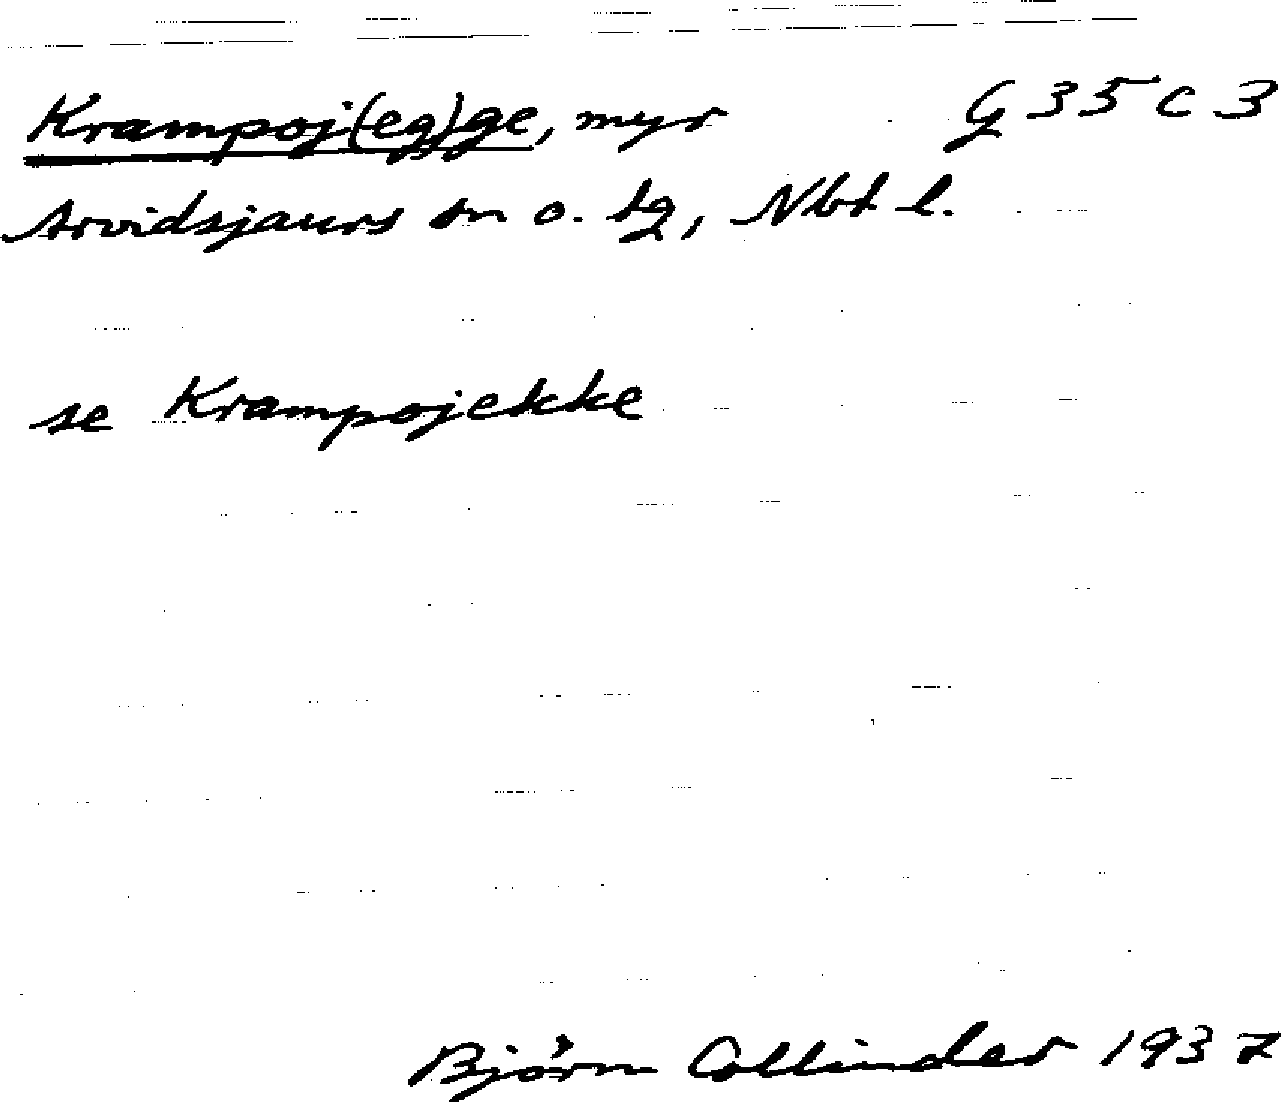 Krampoj(eg)ge, myr G 35 C 3
Arvidsjaurs sn o. tg, Nbt l.
se Krampojekke
Björn Collinder 1937